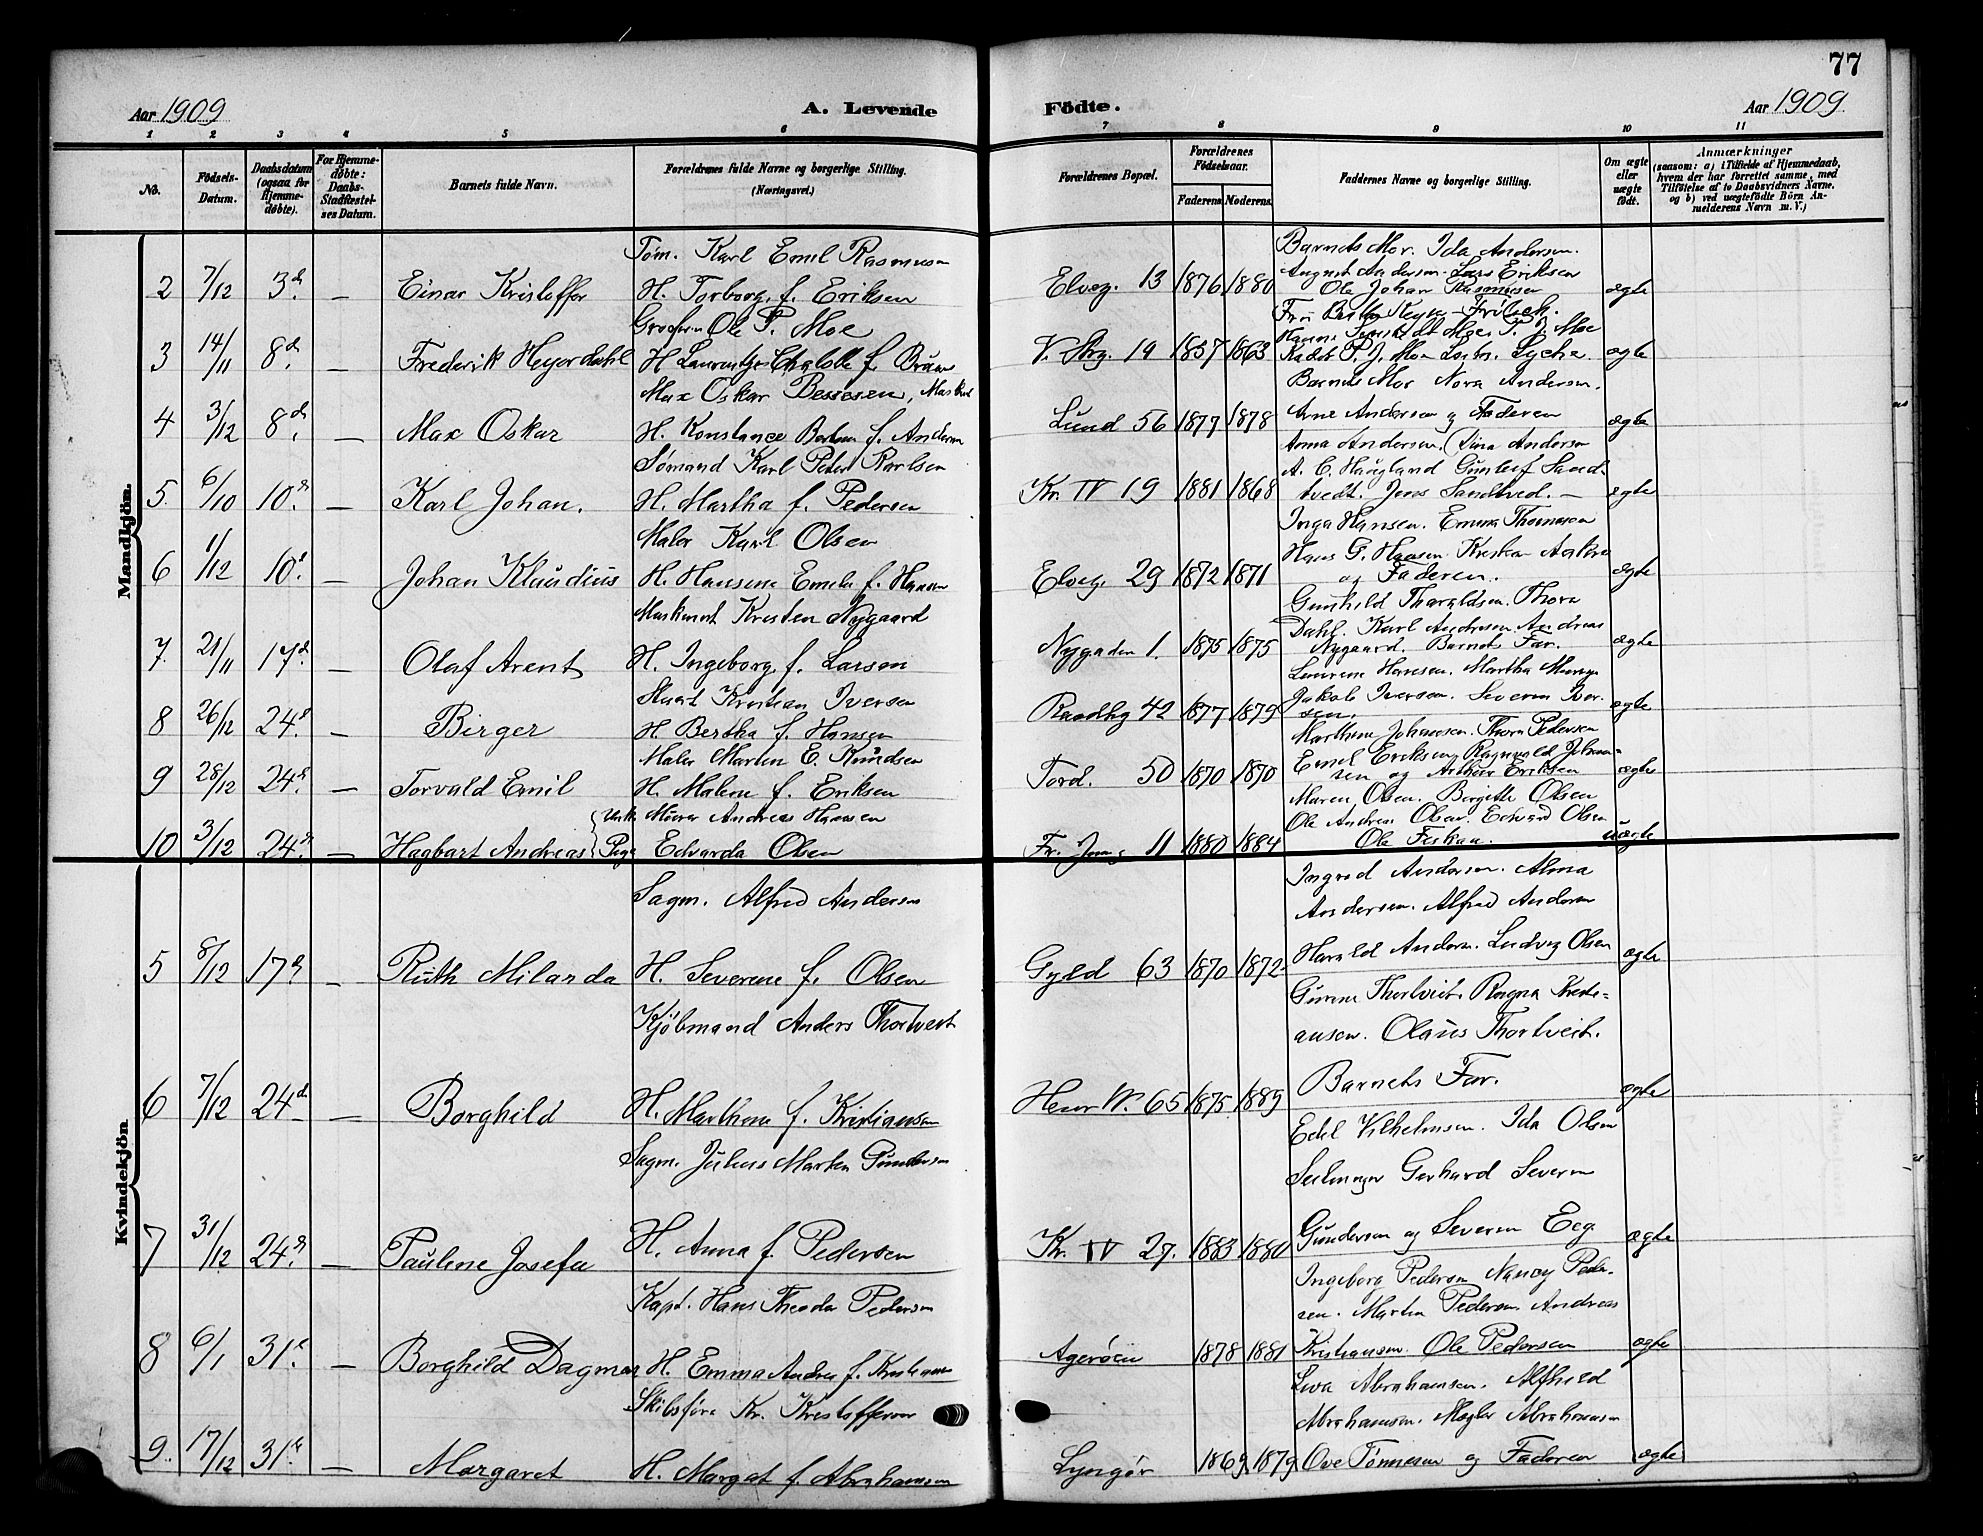 77
Aar 1909
A. Levende
Födte.
Aar 1909
1 2 3 4 5 6 7 8 9 10 11
No.
Födsels-Datum.
Daabsdatum (ogsaa for Hjemme-döbte).
For Hjemme-döbte: Daabs-Stadfæstel-ses Datum.
Barnets fulde Navn.
Forældrenes fulde Navne og borgerlige Stilling. (Næringsvei.)
Forældrenes Bopæl.
Forældrenes Födselsaar.
Faderens Moderens
Faddernes Navne og borgerlige Stilling.
Om ægte eller uægte födt.
Anmærkninger
(saasom: a) i Tilfælde af Hjemmedaab, hvem der har forrettet samme, med Tilföielse af to Daabsvidners Navne. og b) ved uægtefödte Börn An-melderens Navn m. V.)
Mandkjön.
Tøm. Karl Emil Rasmusen
Barnets Mor. Ida Andersen.
August Andersen. Lars Eriksen
2 7/12 3d. — Einar Kristoffer H. Torborg f. Eriksen Elveg. 13 1876 1880 Ole Johan Rasmusen ægte
Ole P. Moe
3 14/11 8d. Frederik Heyerdahl H. f. V. Strg. 19 1857 1863 ægte
Max Oskar Bessesen,
Barnets Mor Nora Andersen.
4 3/12 8d. — Max Oskar H. Konstance f. Andersen Lund 56 1877 1878 Arne Andersen og Faderen ægte
Sømand Karl Peter Karlsen
Anna Andersen. Dina Andersen
A. C. Haugland Gunleif Sand-
5. 6/10 10d. — Karl Johan. H. Martha f. Pedersen Kr. IV 19 1881 1868 tvedt. Jens Sandtved. — ægte
Maler Karl Olsen
Inga Hansen. Emma Thomesen
Hans G. Hansen.
6 1/12 10d. — Johan Klaudius H. Hansine Emilie f. Hansen Elveg. 29 1872 1871 og Faderen. ægte
Maskinist Kristen Nygaard
Gunhild Tharaldsen. Thora
Dahl. Karl Andresen. Andreas
7. 21/11 17d. — Olaf Arent H. Ingeborg f. Larsen Nygaden 1. 1875 1875 Nygaard. Barnets Far. ægte
Kristian Iversen
Laurene Hansen. Martha
Jakob Iversen. Severin Iver-
8 26/12 24d. — Birger H. Bertha f. Hansen Raadhg 42 1877 1879 sen. ægte
Maler Martin E. Knudsen
Marthine Johannesen. Thora Pedersen
Emil Eriksen, Ragnvald Johan-
9 28/12 24d. — Torvald Emil H. Malene f. Eriksen Tord. 50 1870 1870 sen og Arthur Eriksen ægte
Murer Andreas Hansen
Maren Olsen. Borgitte Olsen
Ole Andreas Olsen. Edvard Olsen
10 3/12 24d. — Hagbart Andreas Pige Edvarda Olsen 11 1880 1884 Ole Fiskaa. uægte
Kvindekjön.
Sagm. Alfred Andersen
Ingrid Andersen. Alma
Andersen. Alfred Andersen
5 8/12 17d. — Ruth Milanda H. Severine f. Olsen Gyld 63 1870 1872 Harald Andersen. Ludvig Olsen ægte
Kjøbmand Anders Thortveit
Gurine Thortveit. Ragna Kristi-
ansen. Olaus Thortveit.
6 7/12 24d. — Borghild H. Marthine f. Kristiansen Henr W. 65 1875 1889 Barnets Far. ægte
Sagm. Julius Martin Gundersen
Edel Vilhelmsen. Ida Olsen
Seilmager Gerhard Severin
7 31/12 24d. — Pauline Josefa H. Anna f. Pedersen Kr. IV 27. 1883 1880 Gundersen og Severin Eeg ægte
Kapt. Hans Theodor Pedersen
Ingeborg Pedersen Nancy Peder-
sen. Martin Pedersen. Andreas
8 6/1 31d. — Borghild Dagmar H. Emma Andrea f. Kristiansen Agerøen 1878 1881 Kristiansen. Ole Pedersen ægte
Skibsfører Kr. Kristoffersen
Abrahamsen. Alfhild
Abrahamsen. Abrahamsen
9. 17/12 31d. — Margaret H. Margat f. Abrahamsen Lyngør 1869 1879 Ove Tønnesen og Faderen ægte